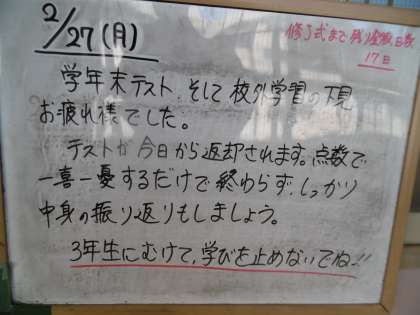 2/27(月)
修了式まで残り登校日数
17日
学年末テスト、そして校外学習の下見
お疲れ様でした。
テストが今日から返却されます。点数で
一喜一憂するだけで終わらず、しっかり
中身の振り返りもしましょう。
3年生にむけて、学びを止めないでね!!